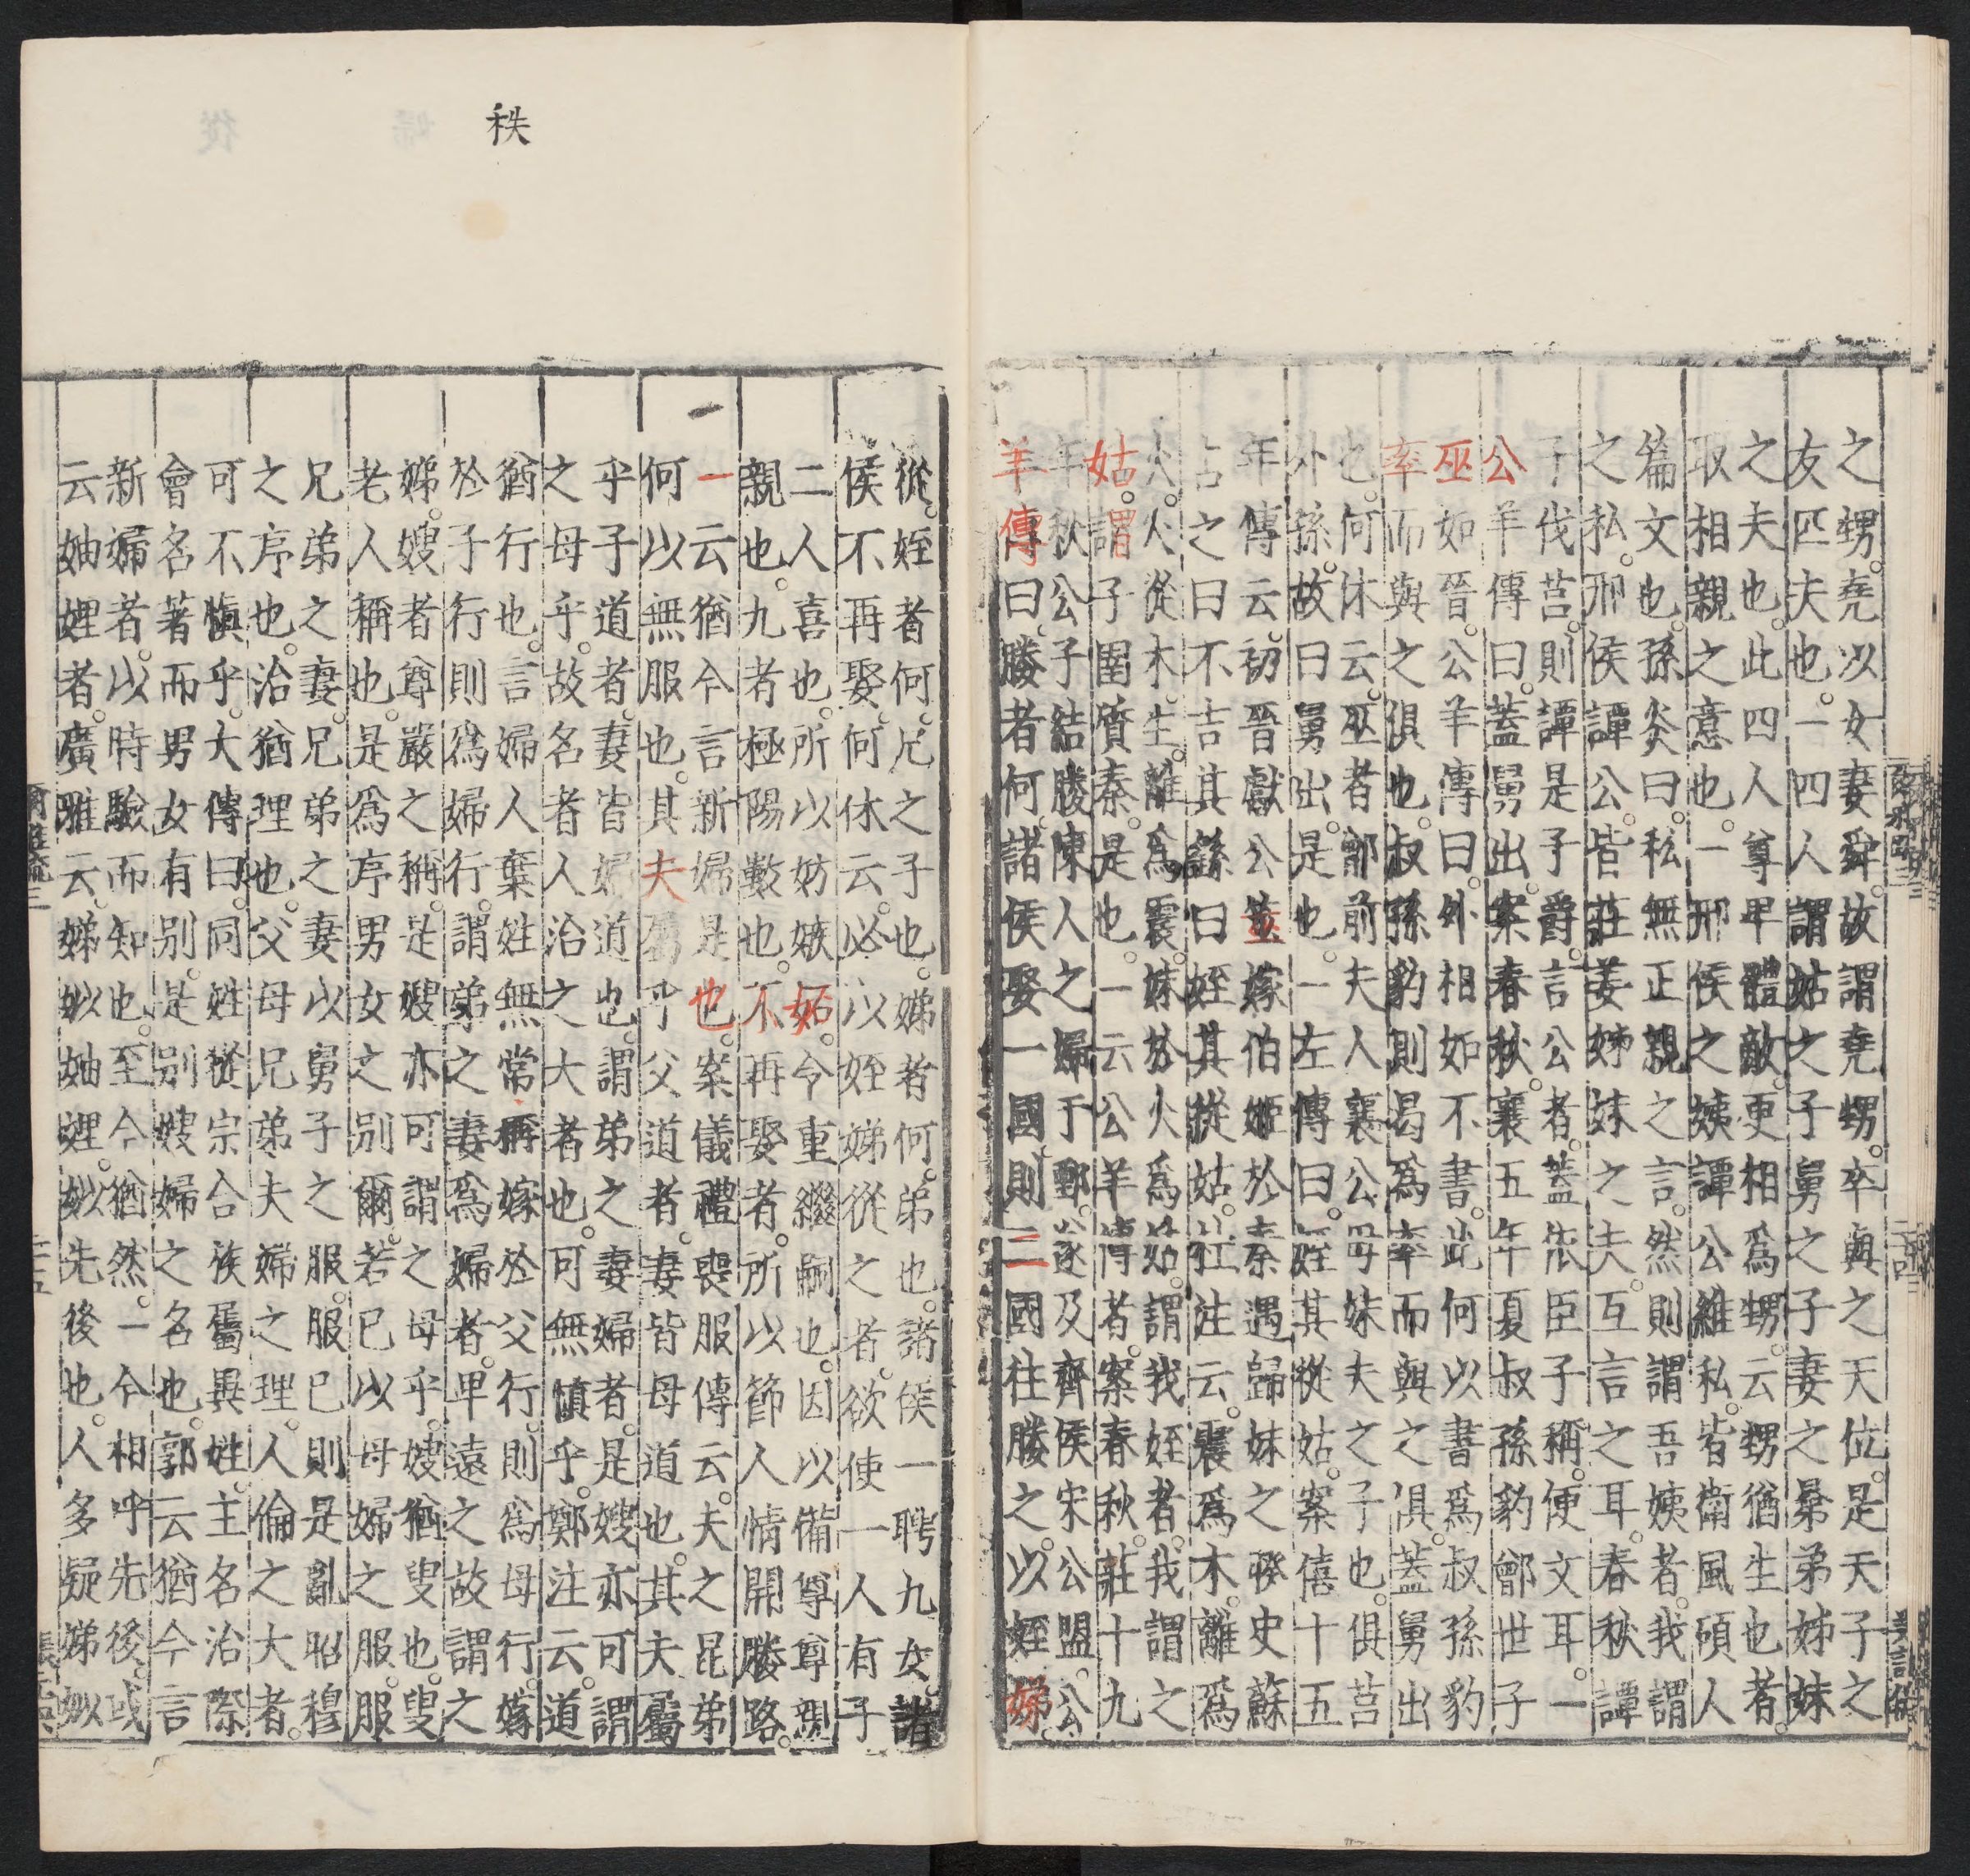 之甥堯以女妻舜故謂堯甥卒與之天位是天子之
友匹夫也一四人謂姑之子舅之子妻之晜弟姊妹
之夫也此四人尊卑體敵更相爲甥云甥猶生也者
取相親之意也一邢侯之姨譚公維私皆衛風碩人
篇文也孫炎曰私無正親之言然則謂吾姨者我謂
之私邢侯譚公皆莊姜姊妹之夫互言之耳春秋譚
子伐莒則譚是子爵言公者蓋依臣子稱便文耳一
公羊傳曰蓋舅出案春秋襄五年夏叔孫豹鄫世子
巫如晉公羊傳曰外相如不書此何以書爲叔孫豹
率而與之俱也叔孫豹則曷爲率而與之俱蓋舅出
也何休云巫者鄫前夫人襄公母妹夫之子也俱莒
外孫故曰舅出是也一左傳曰姪其從姑案僖十五
年傳云初晉獻公筮嫁伯姬於秦遇歸妹之睽史蘇
占之曰不吉其繇曰姪其從姑杜注云震爲木離爲
火火從木生離爲震妹於火爲姑謂我姪者我謂之
姑謂子圉質秦是也一云公羊傳者案春秋莊十九
年秋公子結媵陳人之婦于鄄遂及齊侯宋公盟公
羊傳曰媵者何諸侯娶一國則二國往媵之以姪娣
秩
從姪者何兄之子也娣者何弟也諸侯一聘九女諸
侯不再娶何休云必以姪娣從之者欲使一人有子
二人喜也所以妨嫉妬令重繼嗣也因以備尊尊親
親也九者極陽數也不再娶者所以節人情開媵路
一云猶今言新婦是也案儀禮喪服傳云夫之昆弟
何以無服也其夫屬乎父道者妻皆母道也其夫屬
乎子道者妻皆婦道也謂弟之妻婦者是嫂亦可謂
之母乎故名者人治之大者也可無慎乎鄭注云道
猶行也言婦人棄姓無常稱嫁於父行則爲母行嫁
於子行則爲婦行謂弟之妻爲婦者卑遠之故謂之
娣嫂者尊嚴之稱是嫂亦可謂之母乎嫂猶叟也叟
老人稱也是爲序男女之別爾若已以母婦之服服
兄弟之妻兄弟之妻以舅子之服服已則是亂昭穆
之序也治猶理也父母兄弟夫婦之理人倫之大者
可不慎乎大傳曰同姓從宗合族屬異姓主名治際
會名著而男女有别是别嫂婦之名也郭云猶今言
新婦者以時驗而知也至今猶然一今相呼先後或
云妯娌者廣雅云娣姒妯娌姒先後也人多疑娣姒